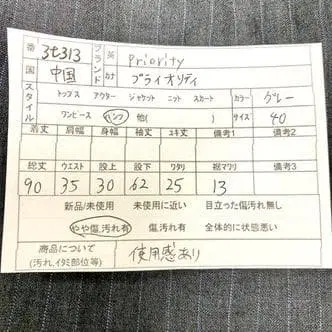 番 3t313 ブランド 英 Priority
国 中国 カナ プライオリティ
スタイル トップス アウター ジャケット ニット スカート カラー グレー
ワンピース パンツ 他( ) サイズ 40
着丈 肩幅 身幅 袖丈 ユキ丈 備考1 備考2
総丈 ウエスト 股上 股下 ワタリ 裾マワリ 備考3
90 35 30 62 25 13
新品/未使用 未使用に近い 目立った傷汚れ無し
やや傷,汚れ有 傷,汚れ有 全体的に状態悪い
商品について 使用感あり
(汚れ,イタミ部位等)